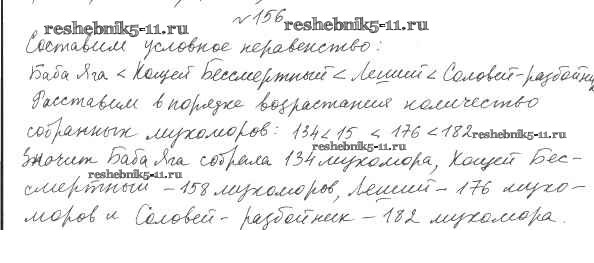 №156
reshebnik5-11.ru reshebnik5-11.ru
Составим условное неравенство:
Баба Яга < Кощей Бессмертный < Леший < Соловей-разбойник
Расставим в порядке возрастания количество
собранных мухоморов: 134 < 15 < 176 < 182 reshebnik5-11.ru
reshebnik5-11.ru
Значит Баба Яга собрала 134 мухомора, Кощей Бес-
reshebnik5-11.ru
смертный - 158 мухоморов, Леший - 176 мухо-
моров и Соловей-разбойник - 182 мухомора.